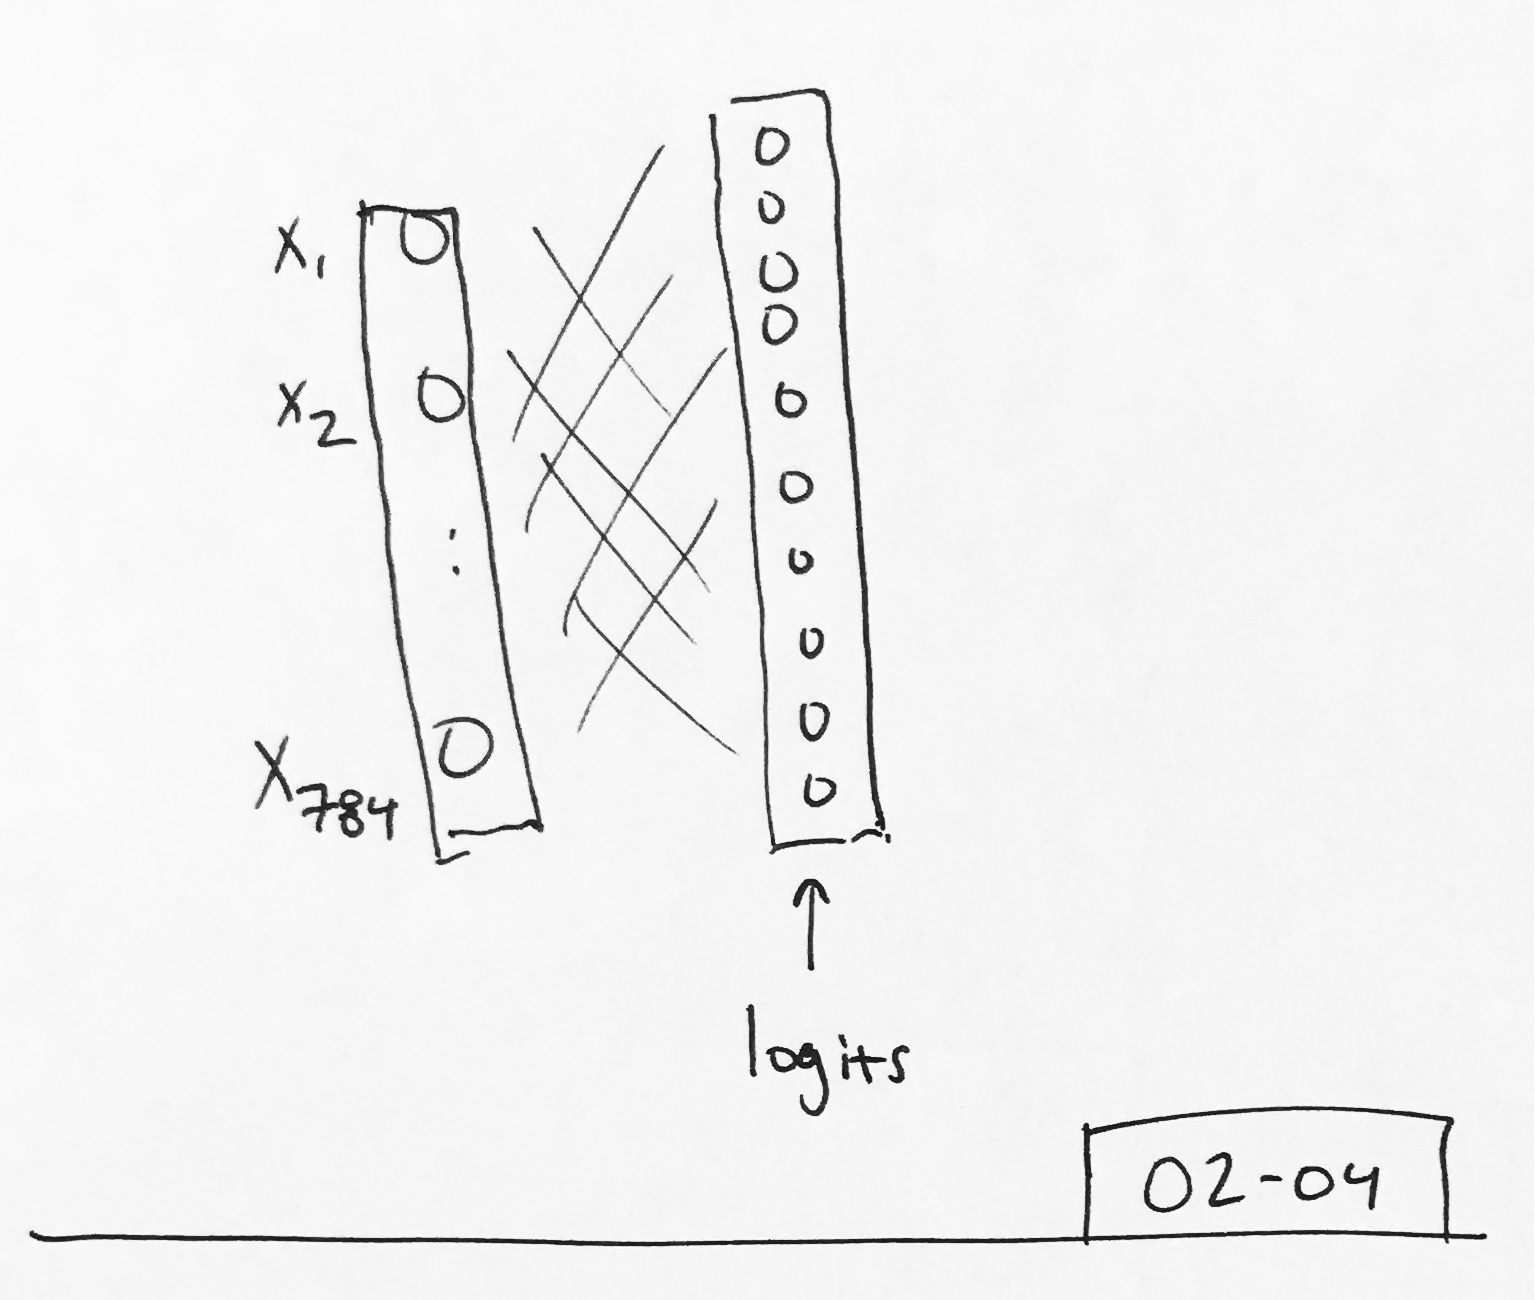 x₁
x₂
x₇₈₄
logits
02-04